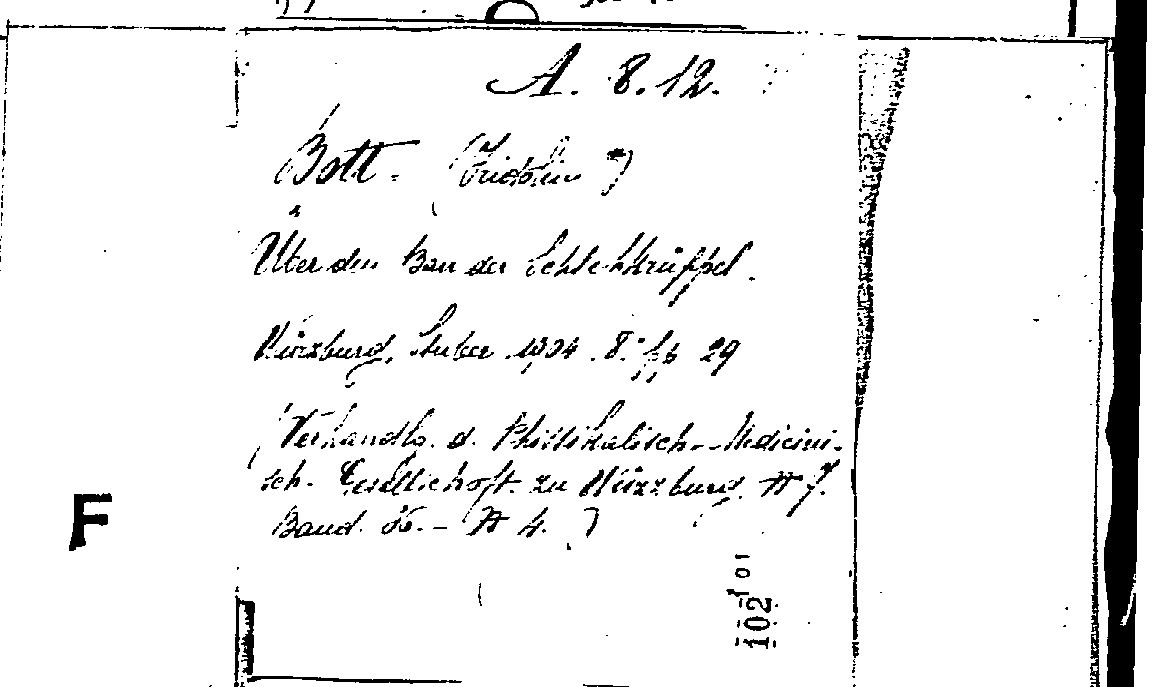 A. 8.12.
Bott. (Fridolin)
Über den Bau der Schlehkrüppel.
Würzburg, Stuber 1904. 8.° pp 29
(Verhandlg. d. Phisikalisch-Medicini-
sch. Gesellschaft. zu Würzburg. N F.
Band. 36. - N 4.)
F
101
102